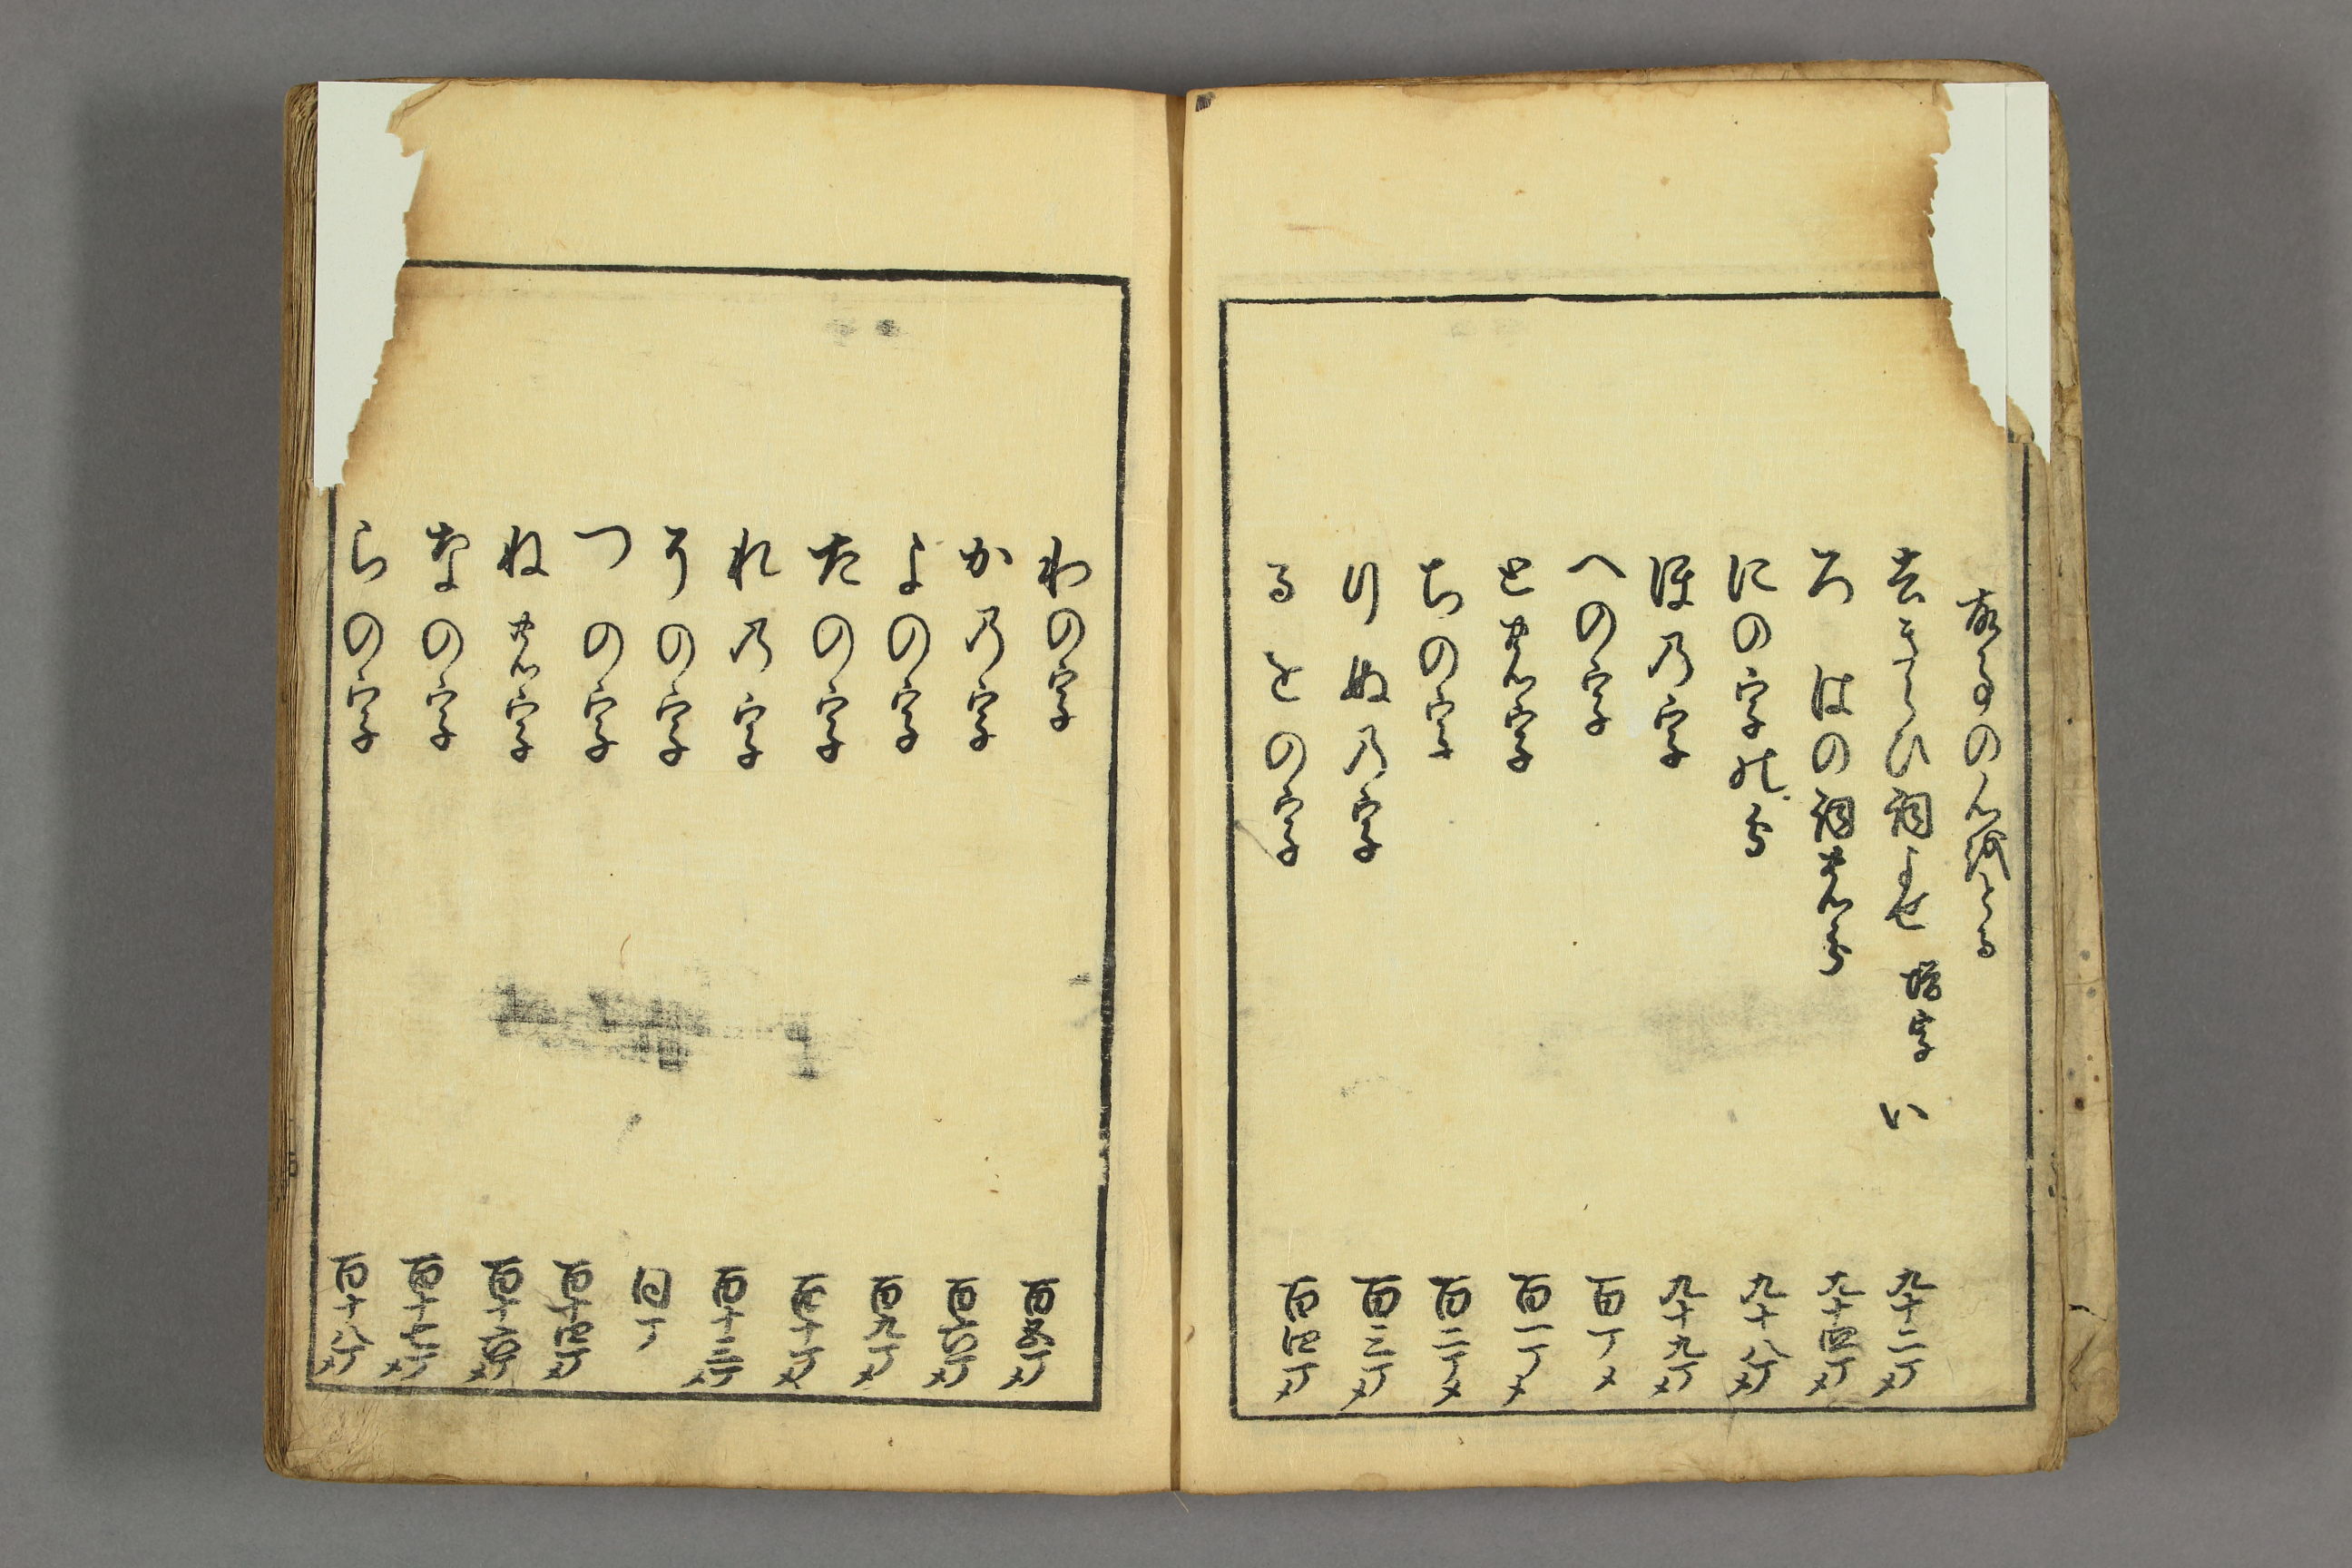 去きらひ詞よせ 増字 い 九十二丁メ
ろ はの詞の分 九十四丁メ
にの字の分 九十八丁メ
ほ乃字 九十九丁メ
への字 百丁メ
との字 百一丁メ
ちの字 百二丁メ
りぬ乃字 百三丁メ
るをの字 百四丁メ
わの字 百五丁メ
か乃字 百六丁メ
よの字 百九丁メ
たの字 百十丁メ
れ乃字 百十三丁メ
その字 同丁
つの字 百十四丁メ
ねの字 百十六丁メ
なの字 百十七丁メ
らの字 百十八丁メ